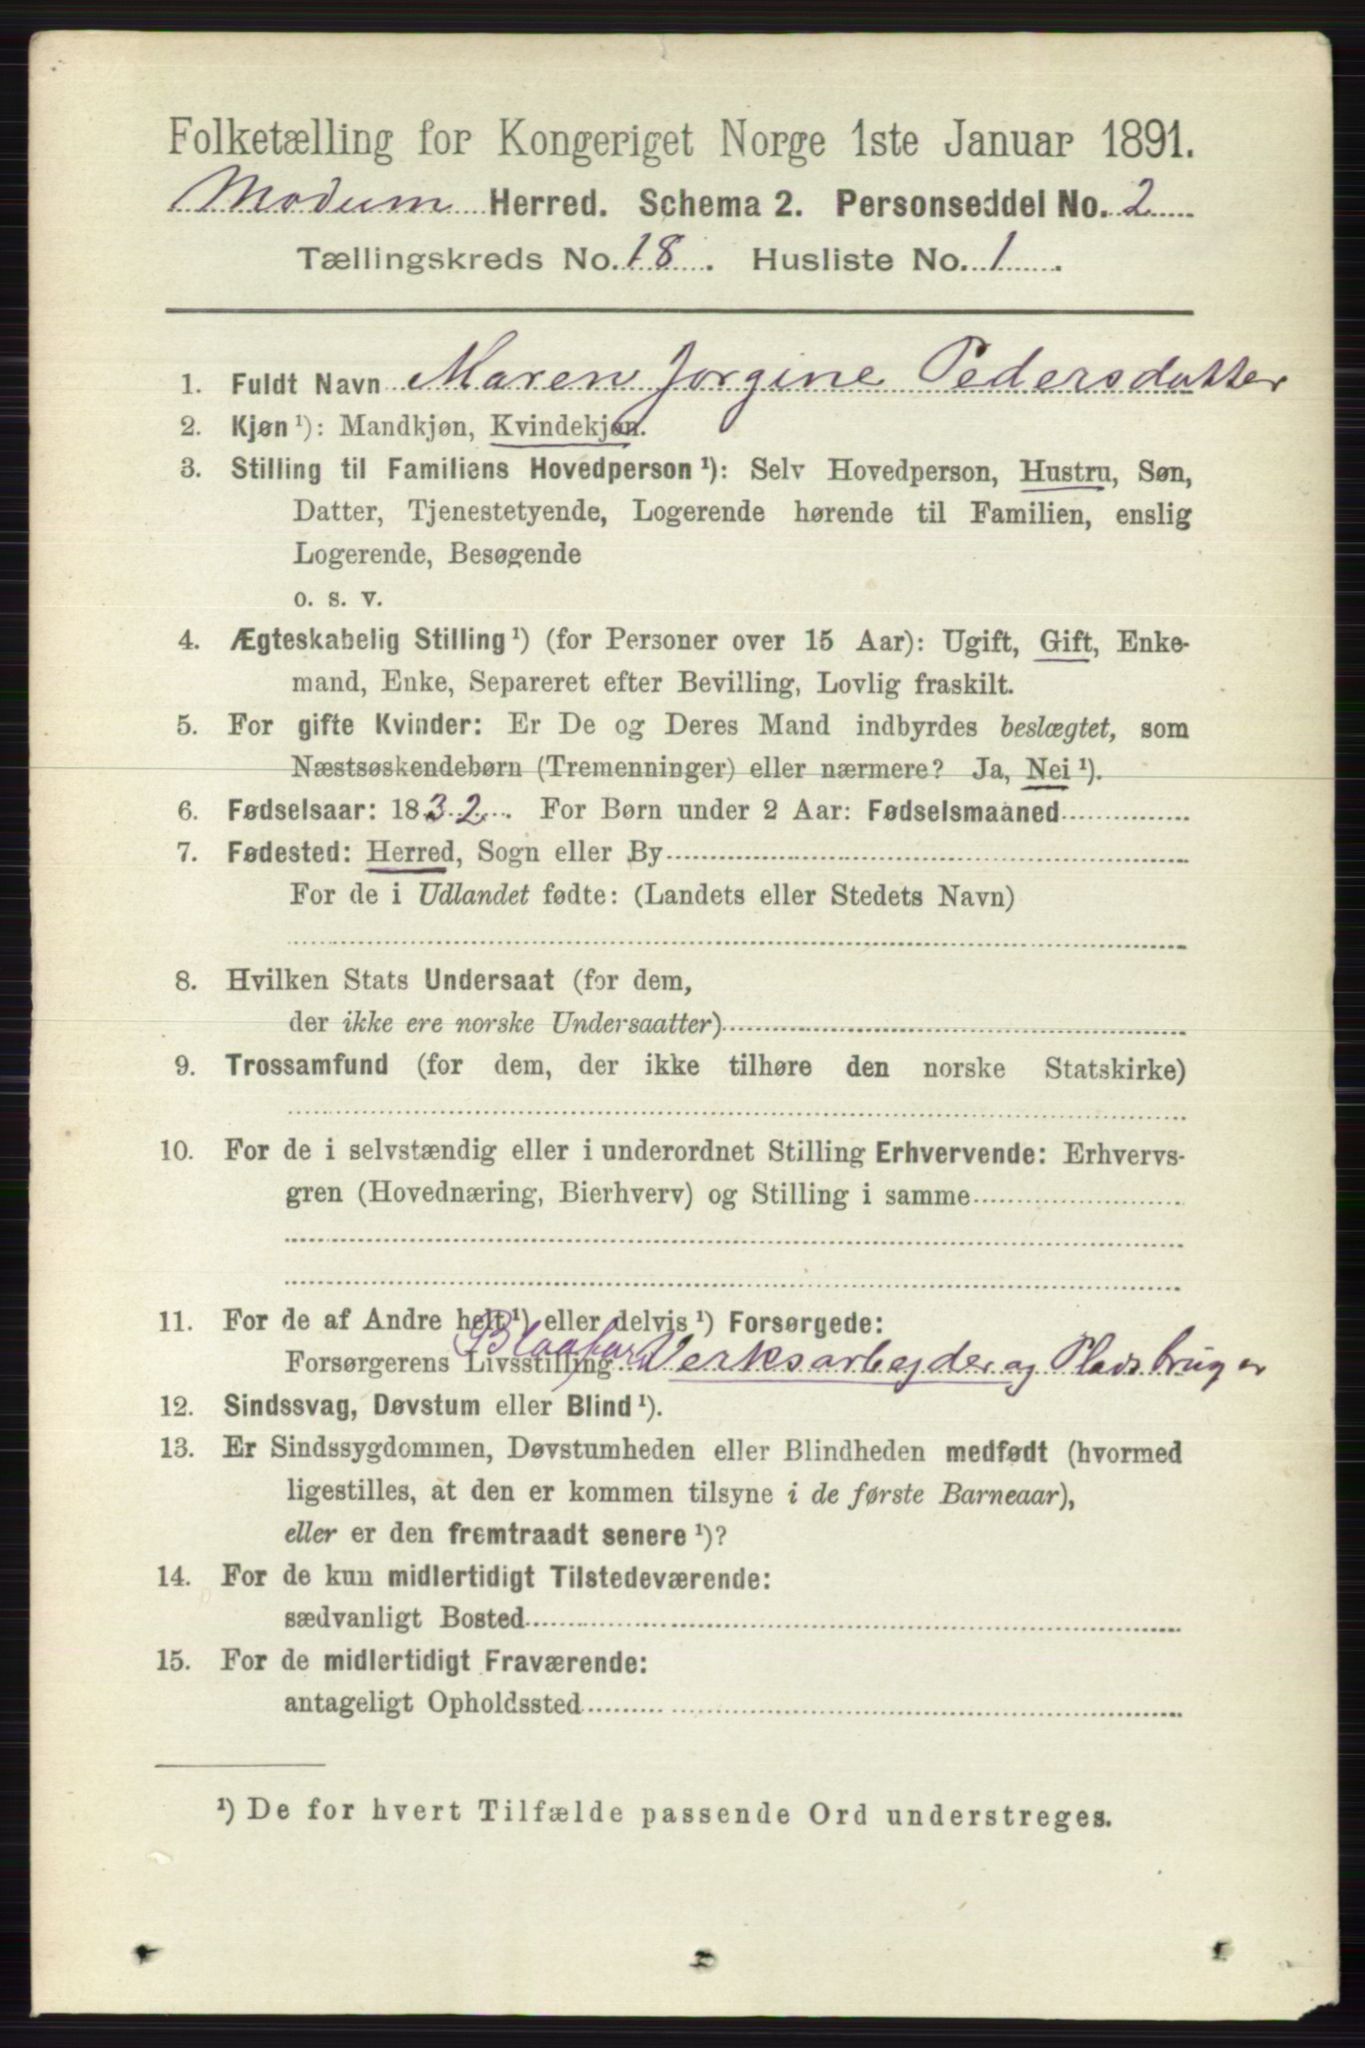 Folketælling for Kongeriget Norge 1ste Januar 1891.
Modum Herred. Schema 2. Personseddel No. 2
Tællingskreds No. 18. Husliste No. 1.
1. Fuldt Navn Maren Jorgine Pedersdatter
2. Kjøn ¹): Mandkjøn, Kvindekjøn.
3. Stilling til Familiens Hovedperson ¹): Selv Hovedperson, Hustru, Søn,
Datter, Tjenestetyende, Logerende hørende til Familien, enslig
Logerende, Besøgende
o. s. v.
4. Ægteskabelig Stilling ¹) (for Personer over 15 Aar): Ugift, Gift, Enke-
mand, Enke, Separeret efter Bevilling, Lovlig fraskilt.
5. For gifte Kvinder: Er De og Deres Mand indbyrdes beslægtet, som
Næstsøskendebørn (Tremenninger) eller nærmere? Ja, Nei ¹).
6. Fødselsaar: 1832. For Børn under 2 Aar: Fødselsmaaned
7. Fødested: Herred, Sogn eller By
For de i Udlandet fødte: (Landets eller Stedets Navn)
8. Hvilken Stats Undersaat (for dem,
der ikke ere norske Undersaatter)
9. Trossamfund (for dem, der ikke tilhøre den norske Statskirke)
10. For de i selvstændig eller i underordnet Stilling Erhvervende: Erhvervs-
gren (Hovednæring, Bierhverv) og Stilling i samme
11. For de af Andre helt ¹) eller delvis ¹) Forsørgede:
Forsørgerens Livsstilling Blaafarve Verksarbejder og Pladsbruger
12. Sindssvag, Døvstum eller Blind ¹).
13. Er Sindssygdommen, Døvstumheden eller Blindheden medfødt (hvormed
ligestilles, at den er kommen tilsyne i de første Barneaar),
eller er den fremtraadt senere ¹)?
14. For de kun midlertidigt Tilstedeværende:
sædvanligt Bosted
15. For de midlertidigt Fraværende:
antageligt Opholdssted
¹) De for hvert Tilfælde passende Ord understreges.